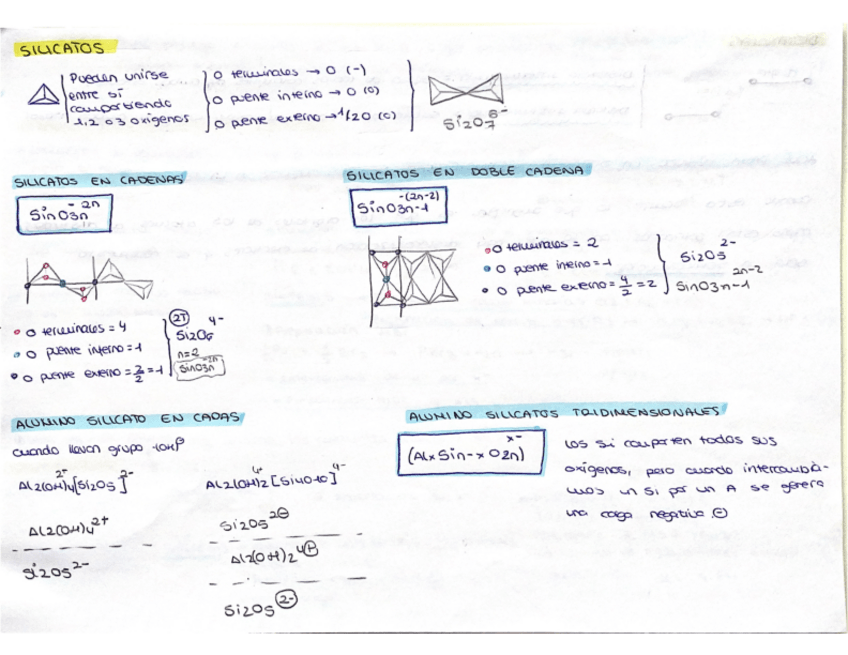 SILICATOS
Pueden unirse
entre sí
compartiendo
1,2 o 3 oxígenos
O terminales → O (-)
O puente interno → O (0)
O puente externo → 1/2 O (0)
Si2O7 6-
SILICATOS EN CADENAS
SinO3n -2n
SILICATOS EN DOBLE CADENA
SinO3n-1 -(2n-2)
O terminales = 4
O puente interno = 1
O puente externo = 2/2 = 1
2T
Si2O6 4-
n=2
SinO3n -2n
O terminales = 2
O puente interno = 1
O puente externo = 4/2 = 2
Si2O5 2-
SinO3n-1 2n-2
ALUMINO SILICATO EN CAPAS
cuando llevan grupo
Al2(OH)4 2+ [Si2O5] 2-
Al2(OH)4 2+
Si2O5 2-
Al2(OH)2 4+ [Si4O10] 4-
Si2O5 2-
Al2(OH)2 4+
Si2O5 2-
ALUMINO SILICATOS TRIDIMENSIONALES
(AlxSin-xO2n) x-
Los Si comparten todos sus
oxígenos, pero cuando intercambia-
mos un Si por un A se genera
una carga negativa (-)